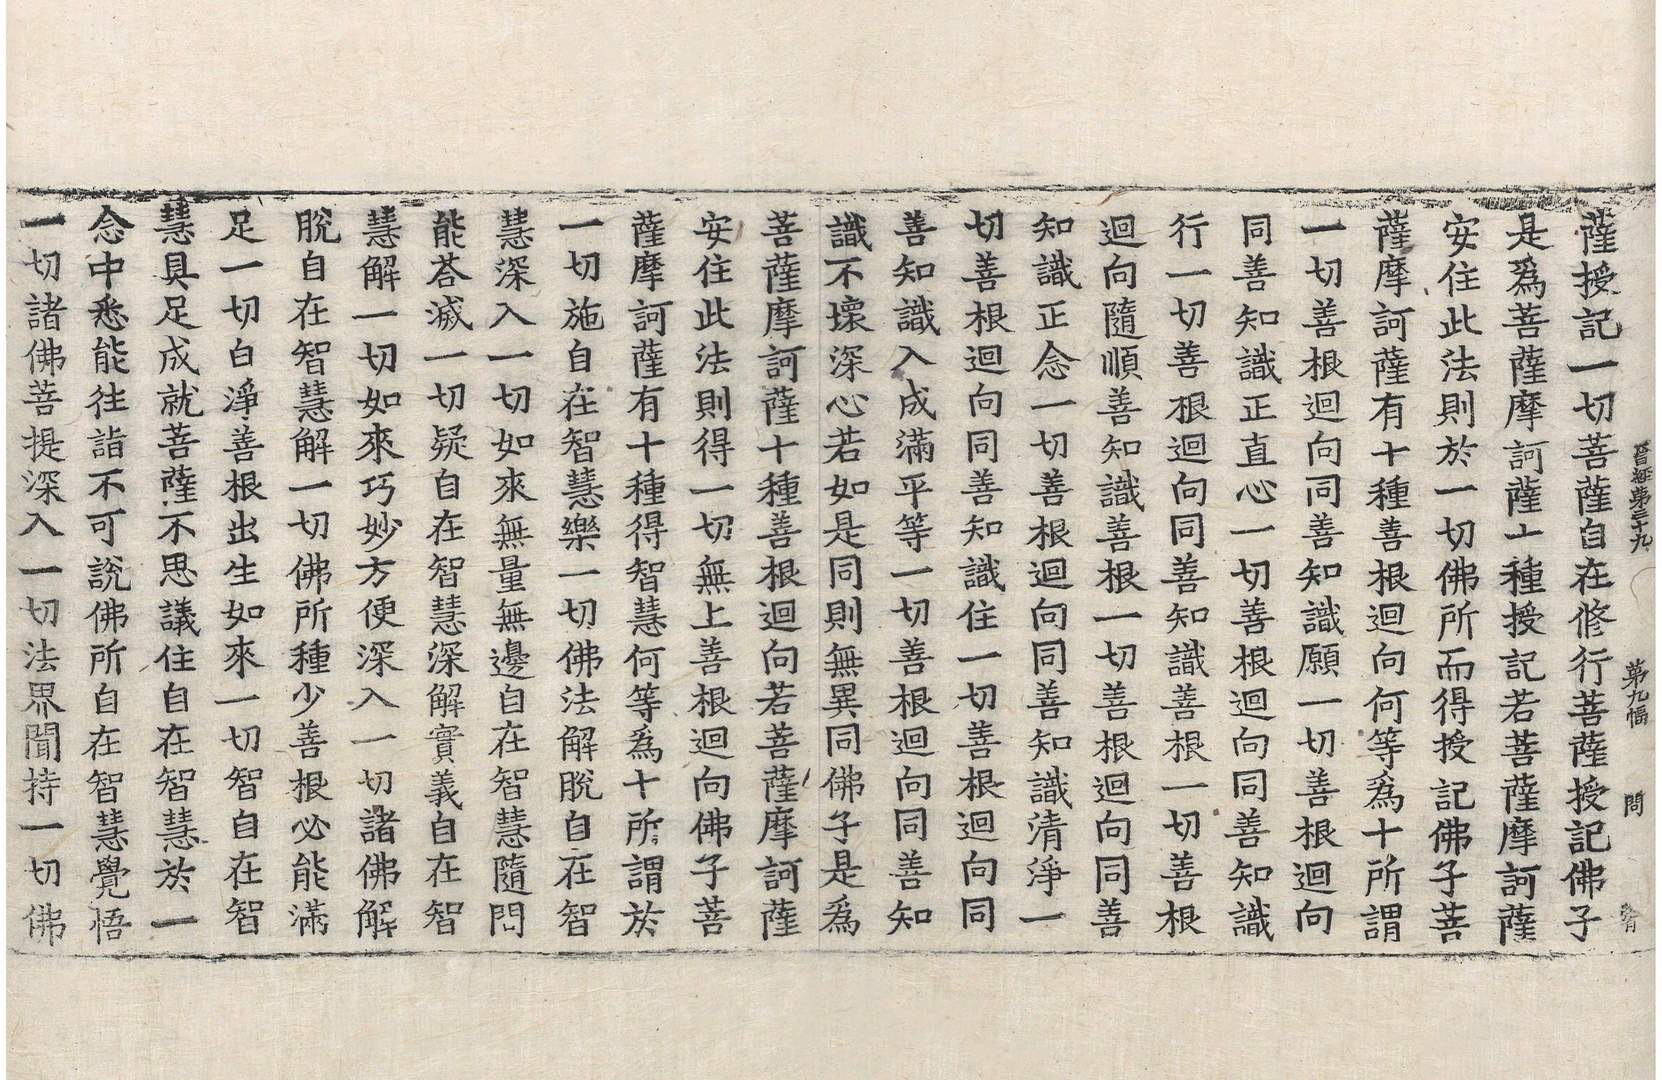 晉經第三十九 第九幅 問
薩授記一切菩薩自在修行菩薩授記佛子
是爲菩薩摩訶薩十種授記若菩薩摩訶薩
安住此法則於一切佛所而得授記佛子菩
薩摩訶薩有十種善根迴向何等爲十所謂
一切善根迴向同善知識願一切善根迴向
同善知識正直心一切善根迴向同善知識
行一切善根迴向同善知識善根一切善根
迴向隨順善知識善根一切善根迴向同善
知識正念一切善根迴向同善知識清淨一
切善根迴向同善知識住一切善根迴向同
善知識入成滿平等一切善根迴向同善知
識不壞深心若如是同則無異同佛子是爲
菩薩摩訶薩十種善根迴向若菩薩摩訶薩
安住此法則得一切無上善根迴向佛子菩
薩摩訶薩有十種得智慧何等爲十所謂於
一切施自在智慧樂一切佛法解脫自在智
慧深入一切如來無量無邊自在智慧隨問
能荅滅一切疑自在智慧深解實義自在智
慧解一切如來巧妙方便深入一切諸佛解
脫自在智慧解一切佛所種少善根必能滿
足一切白淨善根出生如來一切智自在智
慧具足成就菩薩不思議住自在智慧於一
念中悉能往詣不可說佛所自在智慧覺悟
一切諸佛菩提深入一切法界聞持一切佛